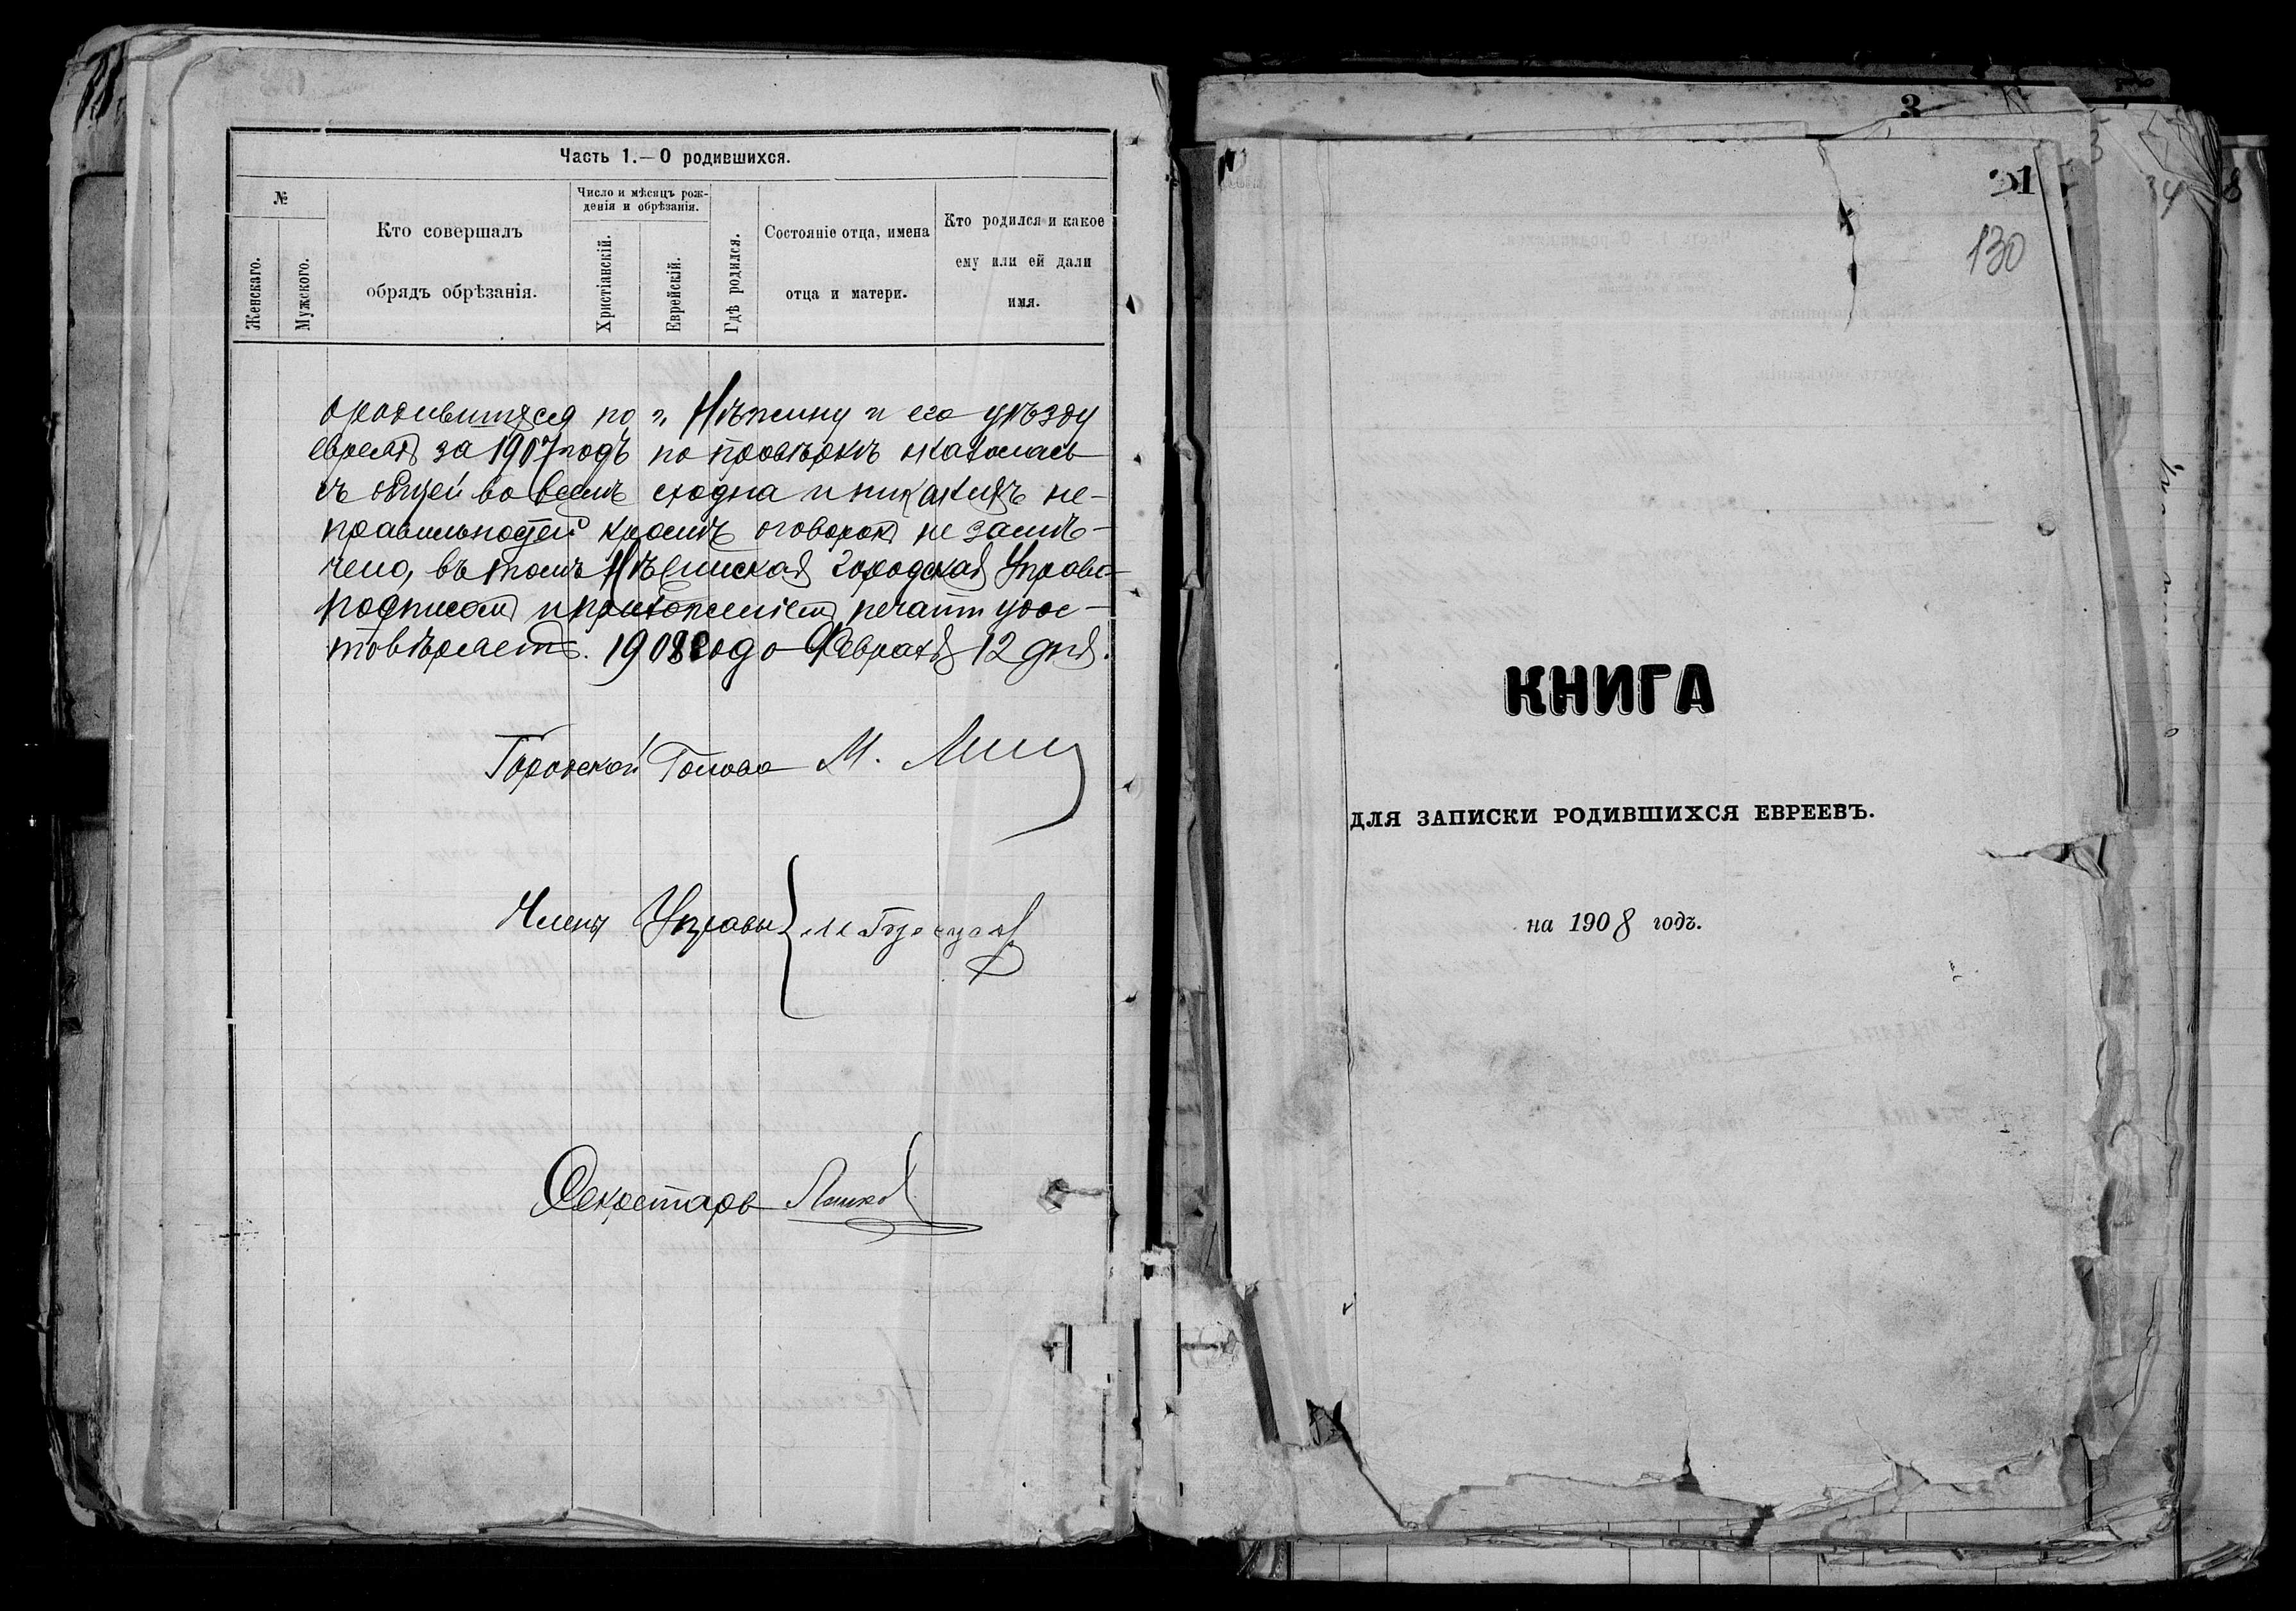 Часть 1.—О родившихся.
№
Женскаго.
Мужского.
Кто совершалъ
обрядъ обрѣзанія.
Число и мѣсяцъ рож-
денія и обрѣзанія.
Христіанскій.
Еврейскій.
Гдѣ родился.
Состояніе отца, имена
отца и матери.
Кто родился и какое
ему или ей дали
имя.
о родившихся по г. Нѣжину и его уѣзду
евреевъ за 1907 годъ по провѣркѣ оказалась
съ общей во всемъ сходна и никакихъ не-
правильностей кромѣ оговорокъ не замѣ-
чено, въ томъ Нѣжинская Городская Управа
подписомъ и приложеніемъ печати удос-
товѣряетъ. 1908 года Февраля 12 дня.
Городской Голова М.
Члены Управы
Секретарь
3
31
130
34
8
КНИГА
ДЛЯ ЗАПИСКИ РОДИВШИХСЯ ЕВРЕЕВЪ.
на 1908 годъ.